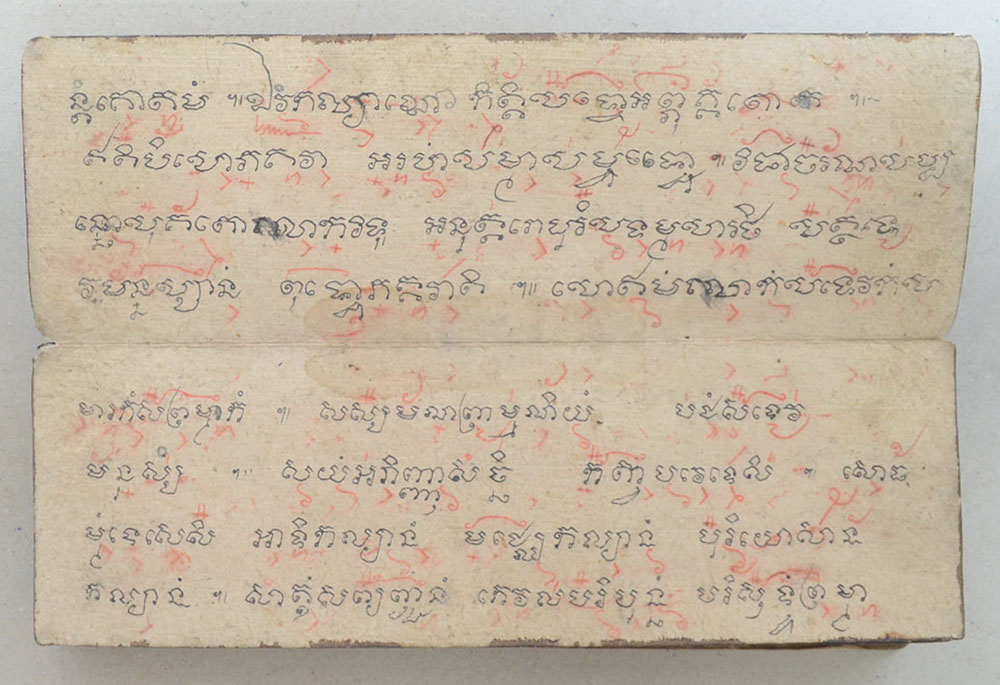 ន្តំគោតមំ ៕ ឯវំកល្យាណោ កិត្តិសទ្ទោអព្ភុគ្គតោ ៕
ឥតិបិសោភគវា អរហំសម្មាសម្ពុទ្ធោ ៕ វិជ្ជាចរណសម្ប
ន្នោសុគតោលោកវិទូ អនុត្តរោបុរិសទម្មសារថិ សត្ថាទេ
វមនុស្សានំ ពុទ្ធោភគវាតិ ៕ សោឥមំលោកំសទេវកំស
មារកំសព្រហ្មកំ ៕ សស្សមណព្រាហ្មណិយំ បជំសទេវ
មនុស្សំ ៕ សយំអភិញ្ញាសច្ឆិ កត្វាបវេទេសិ ៕ សោធ
ម្មំទេសេសិ អាទិកល្យានំ មជ្ឈេកល្យានំ បរិយោសាន
កល្យានំ ៕ សាត្ថំសព្យញ្ជនំ កេវលបរិបុន្នំ បរិសុទ្ធំព្រហ្មា